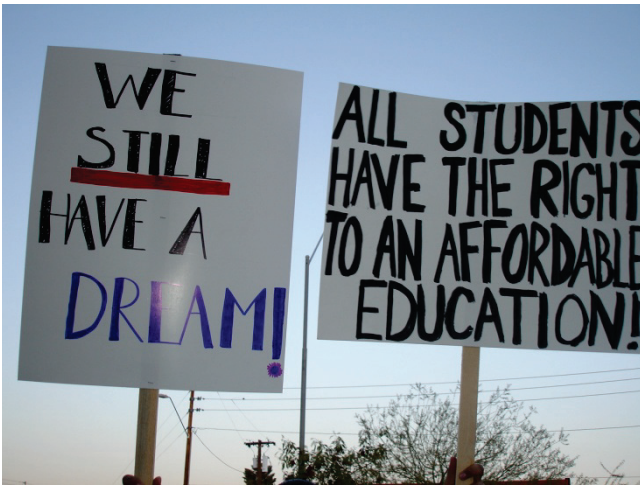 WE
STILL
HAVE A
DREAM!
ALL STUDENTS
HAVE THE RIGHT
TO AN AFFORDABLE
EDUCATION!